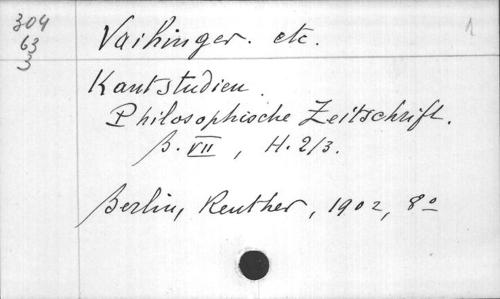 304
63
3
1
Vaihinger. etc.
Kantstudien.
Philosophische Zeitschrift.
B. VII, H. 2/3.
Berlin, Reuther, 1902, 8º